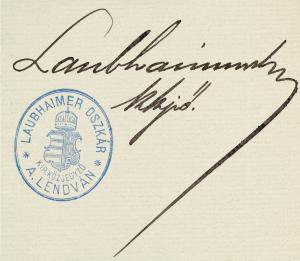 Laubhaimer
kkjző.
LAUBHAIMER OSZKÁR
KIR. KÖZJEGYZŐ
A. LENDVÁN